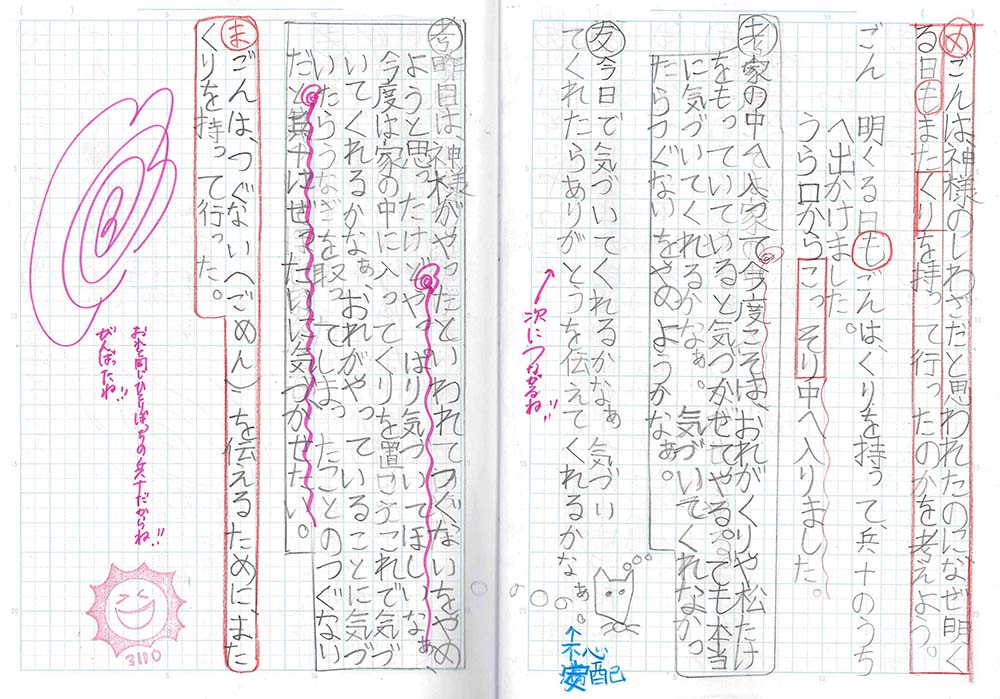 め ごんは、神様のしわざだと思われたのに、なぜ明く
る日もまたくりを持って行ったのかを考えよう。
ごん 明くる日もごんは、くりを持って、兵十のうち
へ出かけました。
うら口からこっそり中へ入りました。
考 家の中へ入って今度こそは、おれがくりや松たけ
をもっていていると気づかせてやる。でも本当
に気づいてくれるかなぁ。気づいてくれなかっ
たらつぐないをやめようかなぁ。
友 今日で気づいてくれるかなぁ気づい
てくれたらありがとうを伝えてくれるかなぁ。
↑次につながるね!!
↑不安心配
考 昨日は、神様がやっただといわれてつぐないをやめ
ようと思ったけどやっぱり気づいてほしいなぁ、
今度は家の中に入ってくりを置こうこれで気づ
いてくれるかなぁ、おれがやっていることに気づ
いたらうなぎを取ってしまったことのつぐない
だと兵十にぜったいに気づかせたい。
ま ごんは、つぐない(ごめん)を伝えるために、また
くりを持って行った。
おれと同じひとりぼっちの兵十だからね!!
がんばったね!!
3110